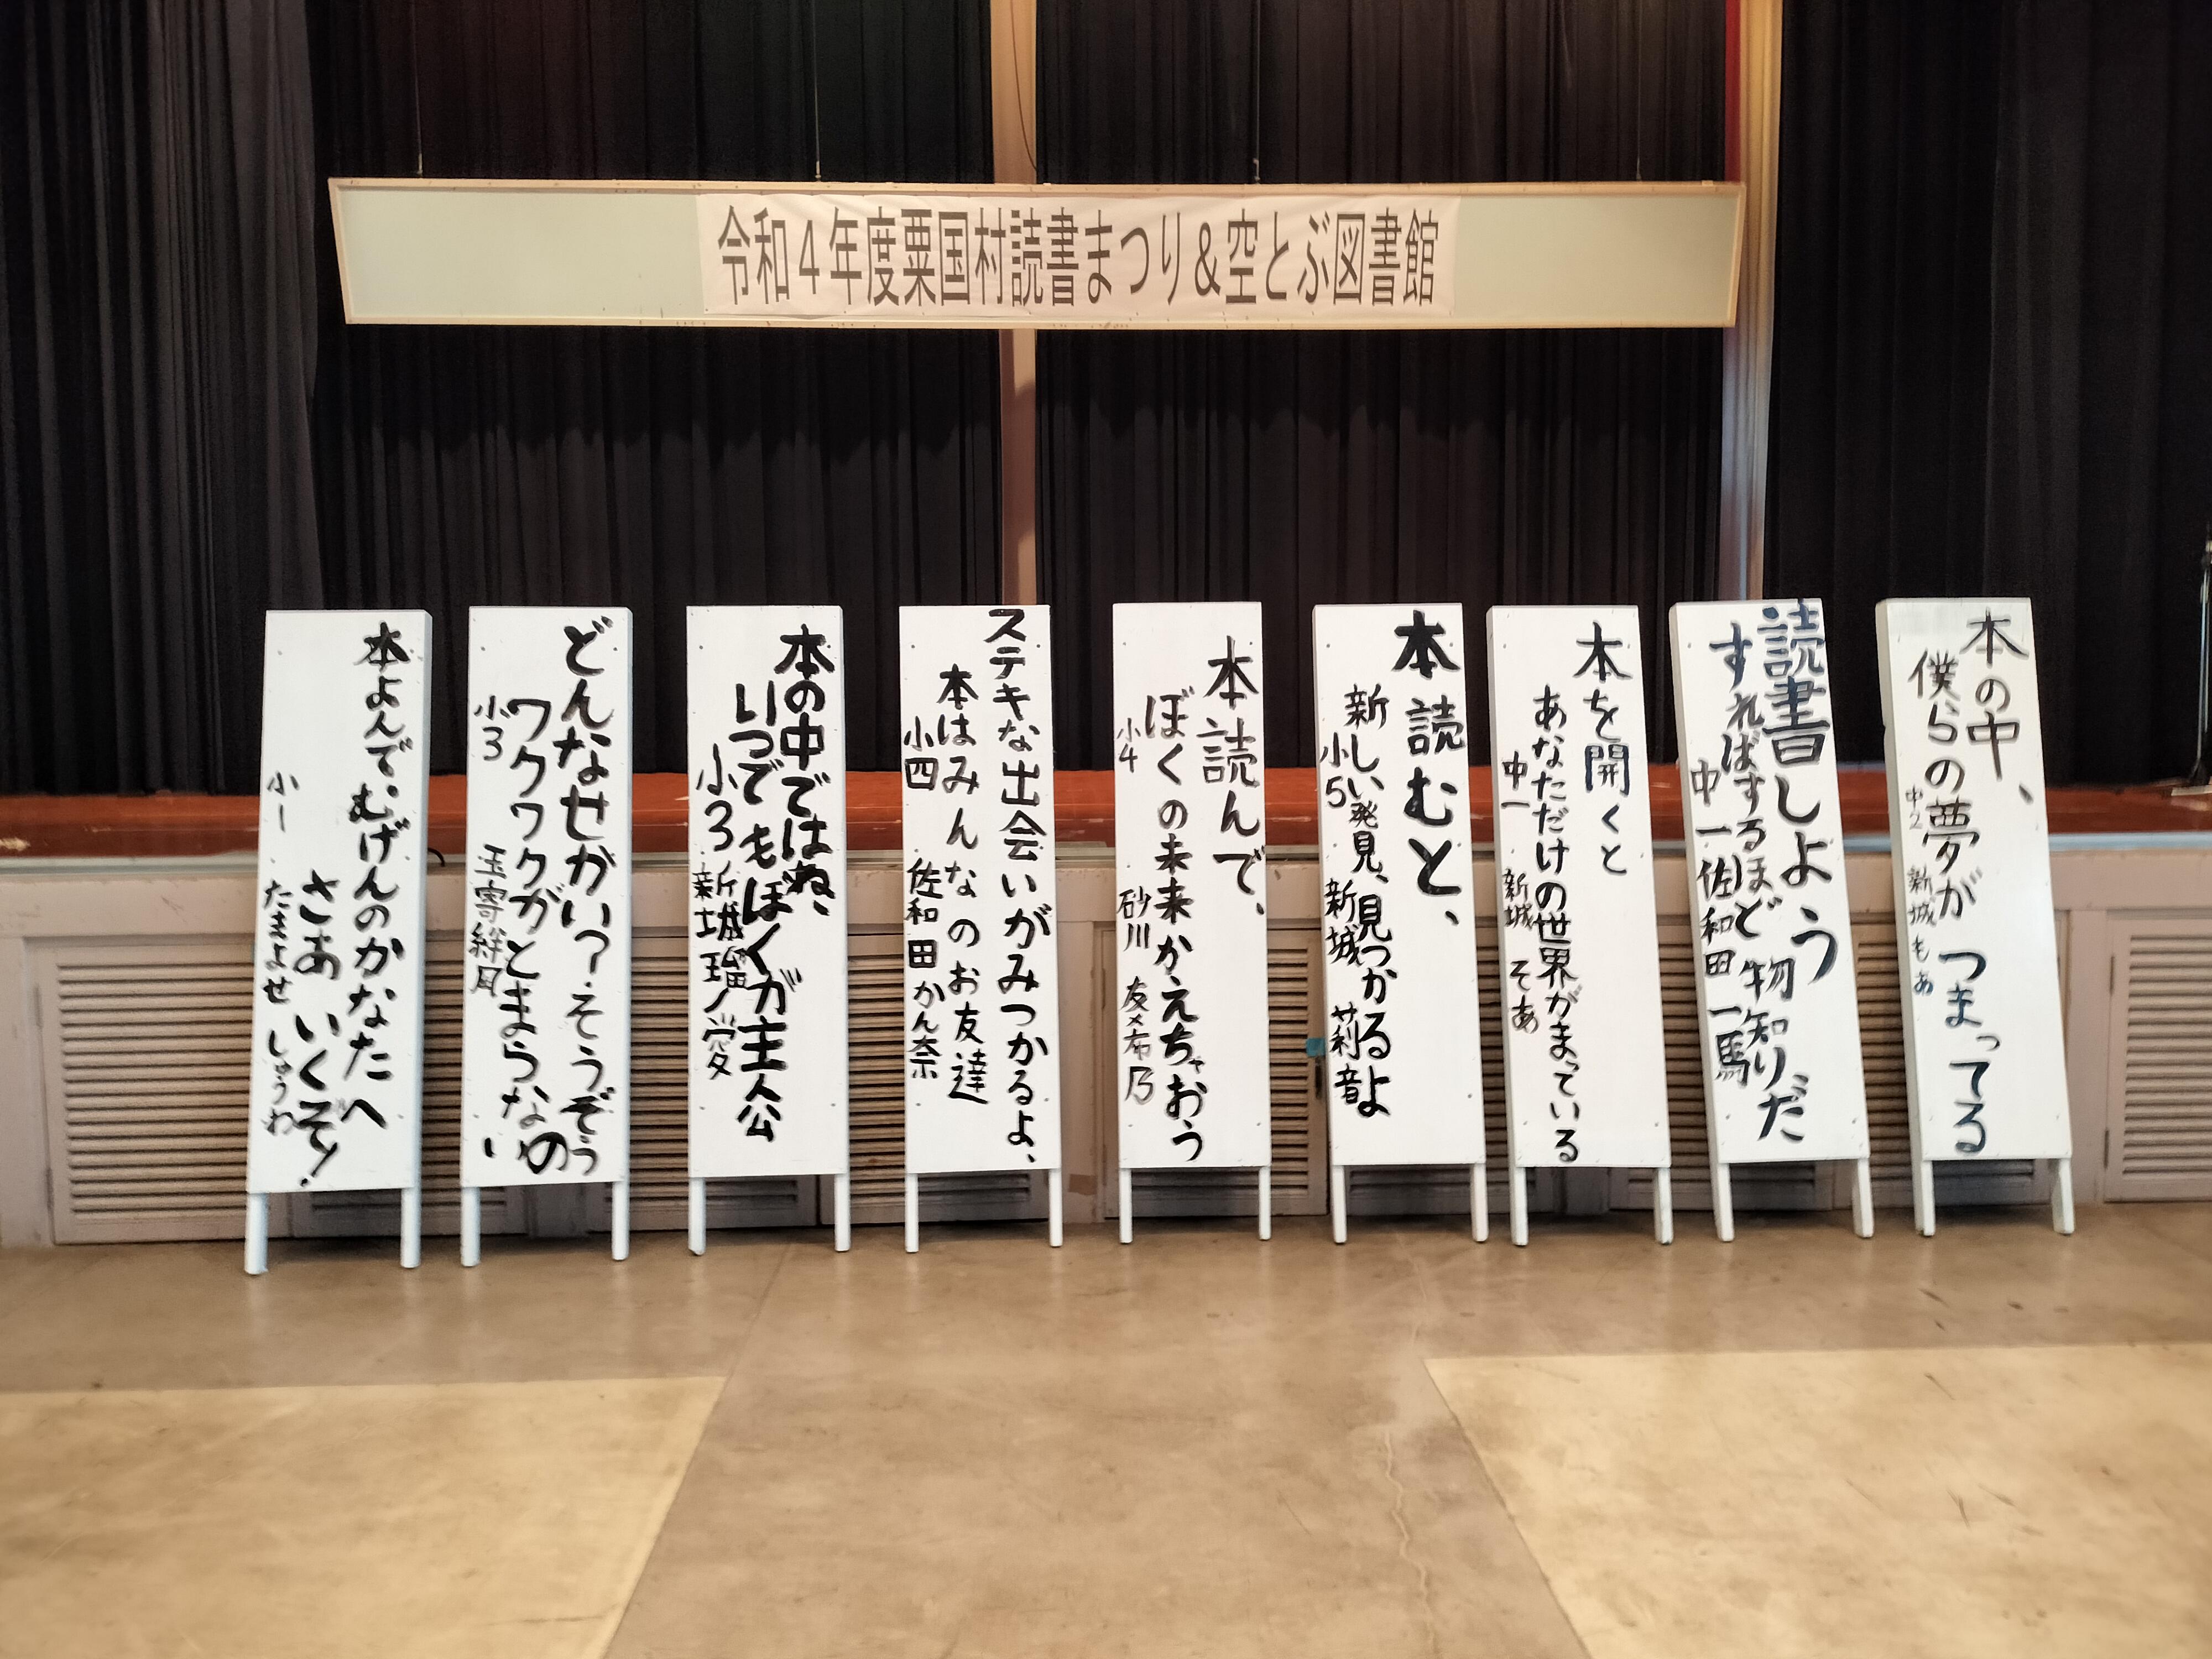 令和4年度粟国村読書まつり&空とぶ図書館
本の中、
僕らの夢が つまってる
中2 新城 もあ
読書しよう
すればするほど 物知りだ
中一 佐和田 一馬
本を開くと
あなただけの世界がまっている
中一 新城 そあ
本読むと、
新しい発見、見つかるよ
小5 新城 莉音
本読んで、
ぼくの未来かえちゃおう
小4 砂川 友希乃
ステキな出会いがみつかるよ、
本はみんなのお友達
小四 佐和田かん奈
本の中ではね、
いつでもぼくが主人公
小3 新城瑠ノ愛
どんなせかい?そうぞう
ワクワクがとまらないの
小3 玉寄絆月
本よんで、むげんのかなたへ
さあ いくぞ!
小一 たまよせ しゅうわ